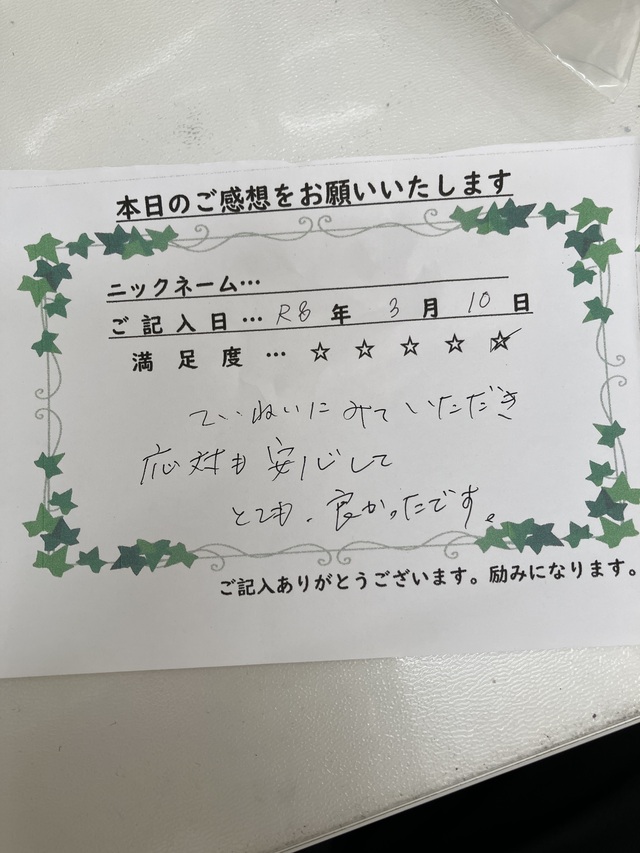 本日のご感想をお願いいたします
ニックネーム…
ご記入日…R8年 3月 10日
満足度…☆ ☆ ☆ ☆ ☆
ていねいにみていただき
応対も安心して
とても、良かったです。
ご記入ありがとうございます。励みになります。